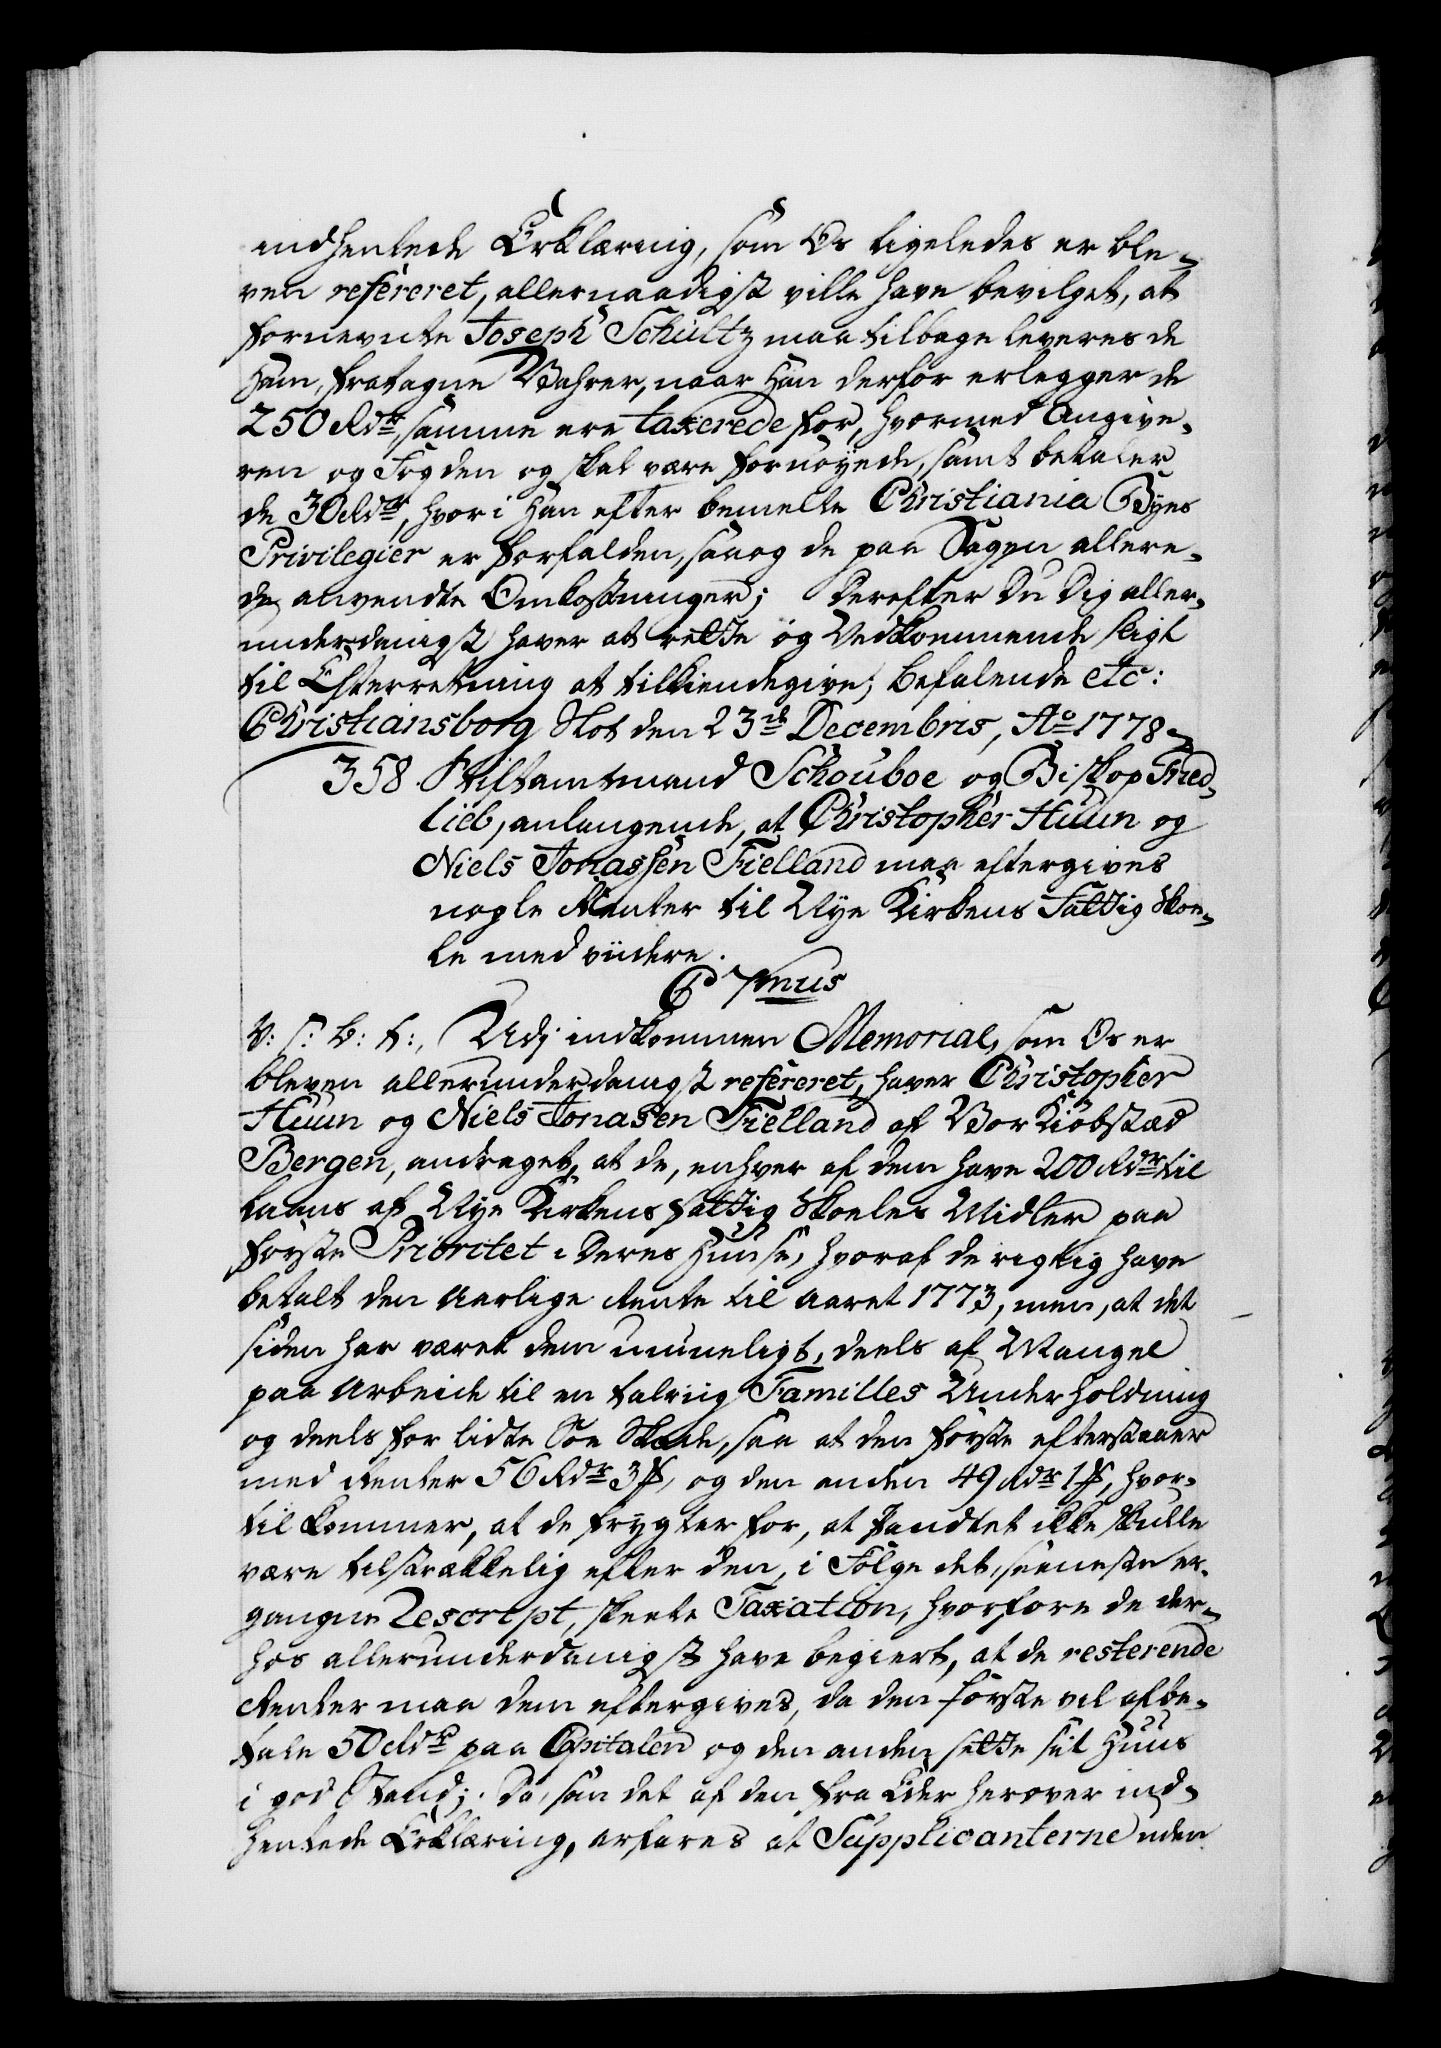 indhentede Erklæring, som Os ligeledes er ble-
ven refereret, allernaadigst ville have bevilget, at
fornevnte Joseph Schultz maa tilbage leveres de
ham, fratagne Wahrer, naar han derfor erlegger de
250 Rdr, samme ere taxerede for, hvormed Angive-
ren og Fogden og skal være fornøyede, samt betaler
de 30 Rdr, hvori han efter bemelte Christiania Byes
Privilegier er forfalden, saaog de paa Sagen allere-
de anvendte Omkostninger; Derefter Du Dig aller-
underdanigst haver at rette og Vedkommende sligt
til Efterretning at tilkiendegive; Befalende etc:
Christiansborg Slot den 23de Decembris, Ao 1778
358 Stiftamtmand Schouboe og Biskop Fred-
lieb, anlangende, at Christopher Huun og
Niels Jonassen Fielland maa eftergives
nogle Renter til Nye Kirkens Fattig Skoe-
le med viidere.
C 7mus
V: S: B: T:, Udj indkommen Memorial, som Os er
bleven allerunderdanigst refereret, haver Christopher
Huun og Niels Jonasen Fielland af Vor Kiøbstæd
Bergen, andraget, at de, enhver af dem have 200 Rdr til
laans af Nye Kirkens Fattig Skoeles Midler paa
første Prioritet i Deres Huuse, hvoraf de rigtig have
betalt den Aarlige Rente til Aaret 1773, men, at det
siden har været dem umueligt, deels af Mangel
paa Arbeide til en talriig Familles Underholdning
og deels for lidte Søe Skade, saa at den første efterstaaer
med Renter 56 Rdr 3 ß, og den anden 49 Rdr 1 ß, hvor-
til kommer, at de frygter for, at Pandtet ikke skulle
være tilstrækkelig efter den, i Følge det, seeneste er-
gangne Rescript, skeete Taxation, hvorfore de der-
hos allerunderdanigst have begiert, at de resterende
Renter maa dem eftergives, da den første vil afbe-
tale 50 Rdr paa Capitalen og den anden sette sit Huus
i god Stand; Da, saa det af den fra Eder herover ind-
hentede Erklæring, erfares at Supplicanterne uden